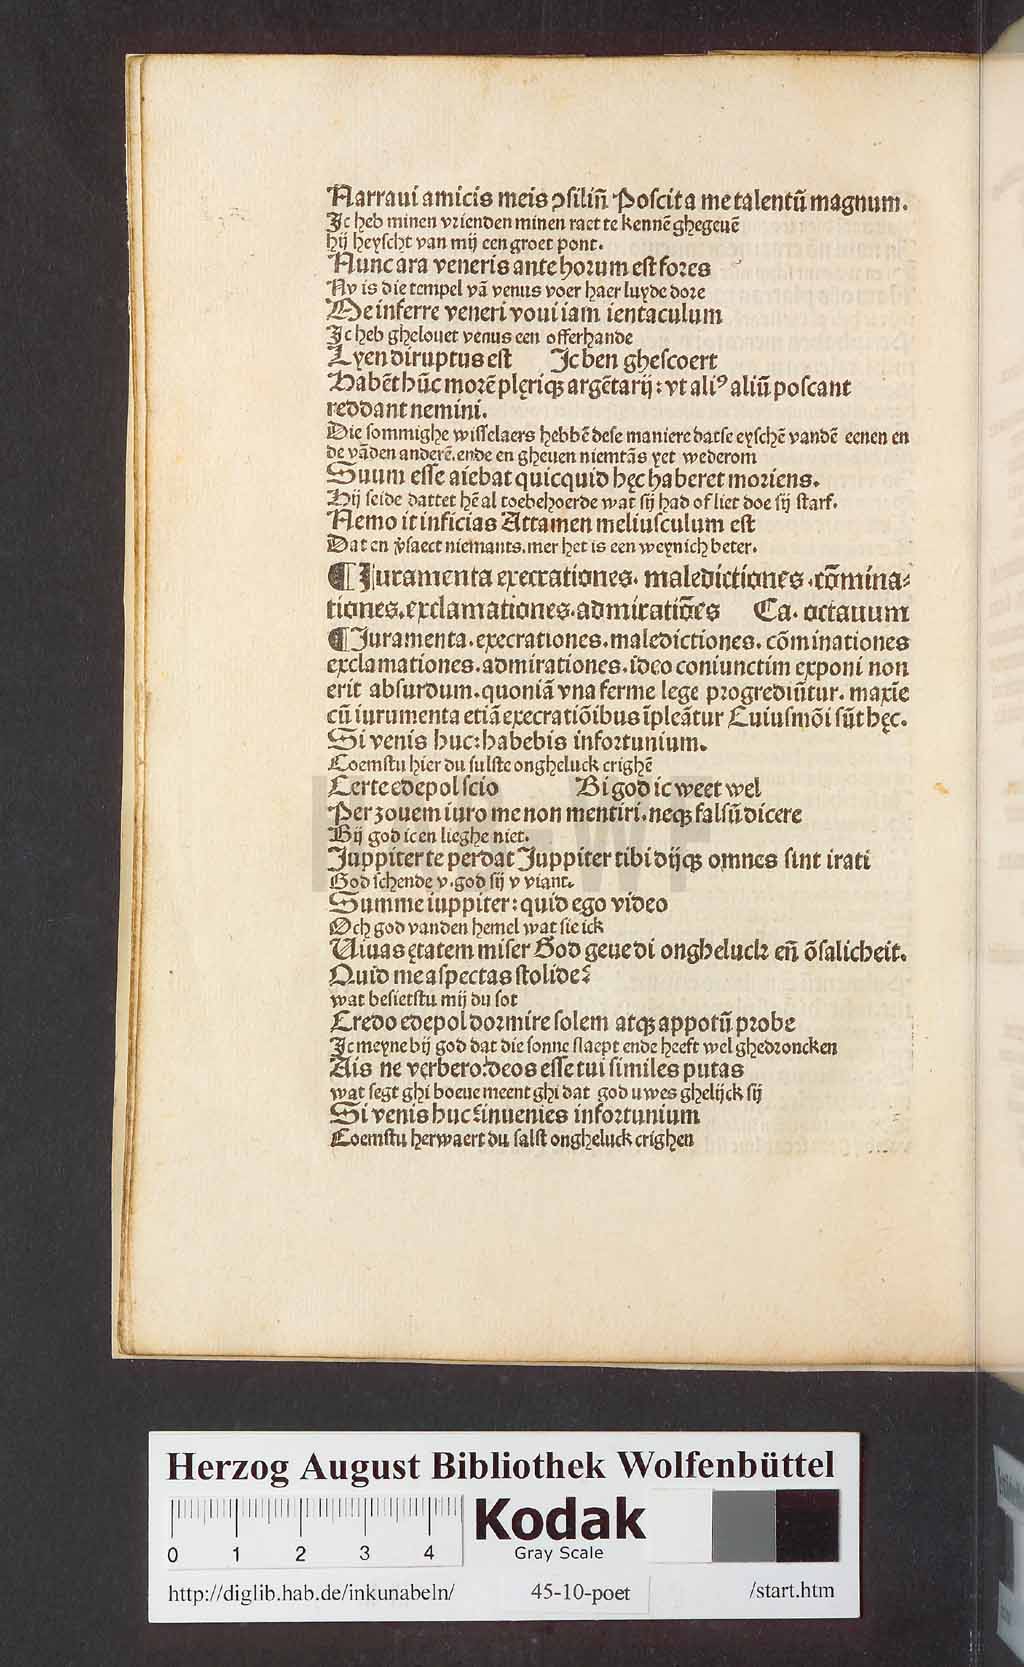 Narraui amicis meis ꝯsiliū̄ Poscit a me talentū magnum.
Jc heb minen vrienden minen raet te kennē ghegeuē
hij heyscht van mij een groet pont.
Nunc ara veneris ante horum est fores
Nv is die tempel vā venus voer haer luyde dore
De inferre veneri voui iam ientaculum
Jc heb ghelouet venus een offerhande
Lyen diruptus est Jc ben ghescoert
Habēt hūc morē plęriqꝫ argētarij: vt aliꝰ aliū poscant
reddant nemini.
Die sommighe wisselaers hebbē dese maniere datse eyschē vandē eenen en
de vādenanderē.ende en gheuen niemtās yet wederom
Suum esse aiebat quicquid hęc haberet moriens.
Hij seide dattet hē al toebehoerde wat sij had of liet doe sij starf.
Nemo it inficias Attamen meliusculum est
Dat en v̄saect niemants.mer het is een weynich beter.
¶Juramenta execrationes. maledictiones .cōmina⸗
tiones.exclamationes.admiratiōes Ca. octauum
¶Juramenta.execrationes.maledictiones. cōminationes
exclamationes.admirationes.ideo coniunctim exponi non
erit absurdum.quoniā vna ferme lege progrediūtur. maxīe
cū iurumenta etiā execratiōibus īpleātur Cuiusmōi sūt hęc.
Si venis huc:habebis infortunium.
Coemstu hier du sulste ongheluck crighē
Certe edepol scio Bi god ic weet wel
Per zouem iuro me non mentiri.neqꝫ falsū dicere
Bij god ic en lieghe niet.
Juppiter te perdat Juppiter tibi dijqꝫ omnes sint irati
God schende v.god sij v viant.
Summe iuppiter: quid ego video
Och god vanden hemel wat sie ick
Viuas ętatem miser God geue di ongheluck eñ ōsalicheit.
Quid me aspectas stolide?
wat besietstu mij du sot
Credo edepol dormire solem atqꝫ appotū probe
Jc meyne bij god dat die sonne slaept ende heeft wel ghedroncken
Ais ne verbero?deos esse tui similes putas
wat segt ghi boeue meent ghi dat god uwes ghelijck sij
Si venis huc?inuenies infortunium
Coemstu herwaert du salst ongheluck crighen
HAB-WF
Herzog August Bibliothek Wolfenbüttel
0 1 2 3 4
Kodak
Gray Scale
http://diglib.hab.de/inkunabeln/ 45-10-poet /start.htm